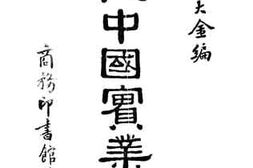 大金編
中國實業
商務印書館